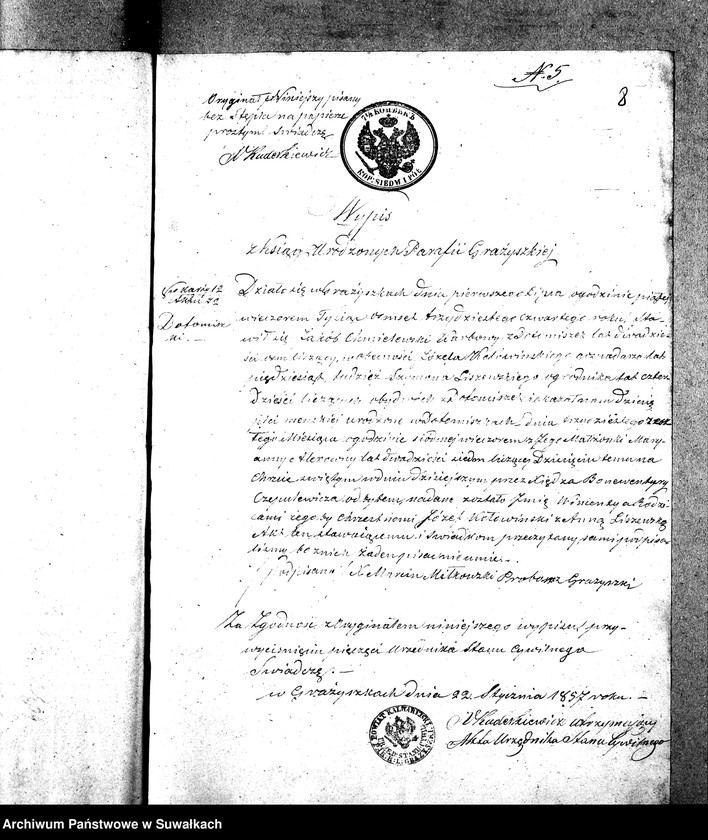 N. 5.
8
Oryginał Niniejszy pisany
bez Stępla na papierze
prostym Świadczę
Kuderkiewicz
7½ КОПѢЕКЪ
KOP: SIEDM I PÓŁ
Wypis
z Księgi Urodzonych Parafii Grażyszkiej
Aktu
Dotamisz
ki.
Działo się w Grażyszkach dnia pierwszego o godzinie piątej
wieczorem Tysiąc ośmset trzydziestego czwartego roku, Sta-
wił się Jakób Chmielewski Karbowy z lat dwadzie-
ści ośm liczący, w obecności Józefa gospodarza lat
pięćdziesiąt, tudzież Szymona Liszewskiego ogrodnika lat czter
dzieści liczących obydwóch z i okazał nam Dziecię
płci męskiej urodzone w dnia trzydziestego
tego Miesiąca o godzinie siódmej wieczorem z Jego Małżonki Mary-
anny lat dwadzieścia siedm liczącej Dziecięciu temu na
Chrzcie świętym w dniu dzisiejszym przez Księdza Bonewentury
odbytem, nadane zostało Imię Wincenty a Rodzi-
cami jego Chrzestnemi Józef z Anną Liszewską
Akt ten stawającemu i świadkom przeczytany, sami podpisa
liśmy bo z nich żaden pisać nie umie.
podpisano X Marcin Miłkowski Proboszcz Grażyszki
Za Zgodność z Oryginałem niniejszego wypisu przy-
wyciśnięciu pieczęci Urzędnika Stanu Cywilnego
Świadczę.
w Grażyszkach dnia 22. Stycznia 1857 roku.
Kuderkiewicz utrzymujący
Akta Urzędnika Stanu Cywilnego
Archiwum Państwowe w Suwałkach